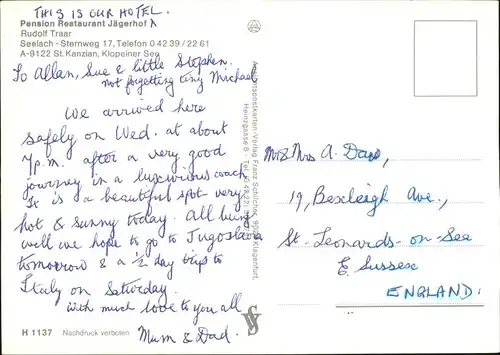 THIS IS OUR HOTEL.
Pension Restaurant Jägerhof
Rudolf Traar
Seelach - Sternweg 17, Telefon 0 42 39 / 22 61
A-9122 St. Kanzian, Klopeiner See
To Allan, Sue & little Stephen.
not forgetting tiny Michael
We arrived here
safely on Wed. at about
7p.m. after a very good
journey in a luxurious coach
It is a beautiful spot very
hot & sunny today. All being
well we hope to go to Jugoslavia
tomorrow & a ½ day trip to
Italy on Saturday.
with much love to you all
Mum & Dad.
H 1137 Nachdruck verboten
Ansichtskarten-Verlag Franz Schilcher, Klagenfurt,
Heinzgasse 8
Mr & Mrs A. Daw,
19, Bexleigh Ave.,
St. Leonards-on-Sea
E. Sussex
ENGLAND.